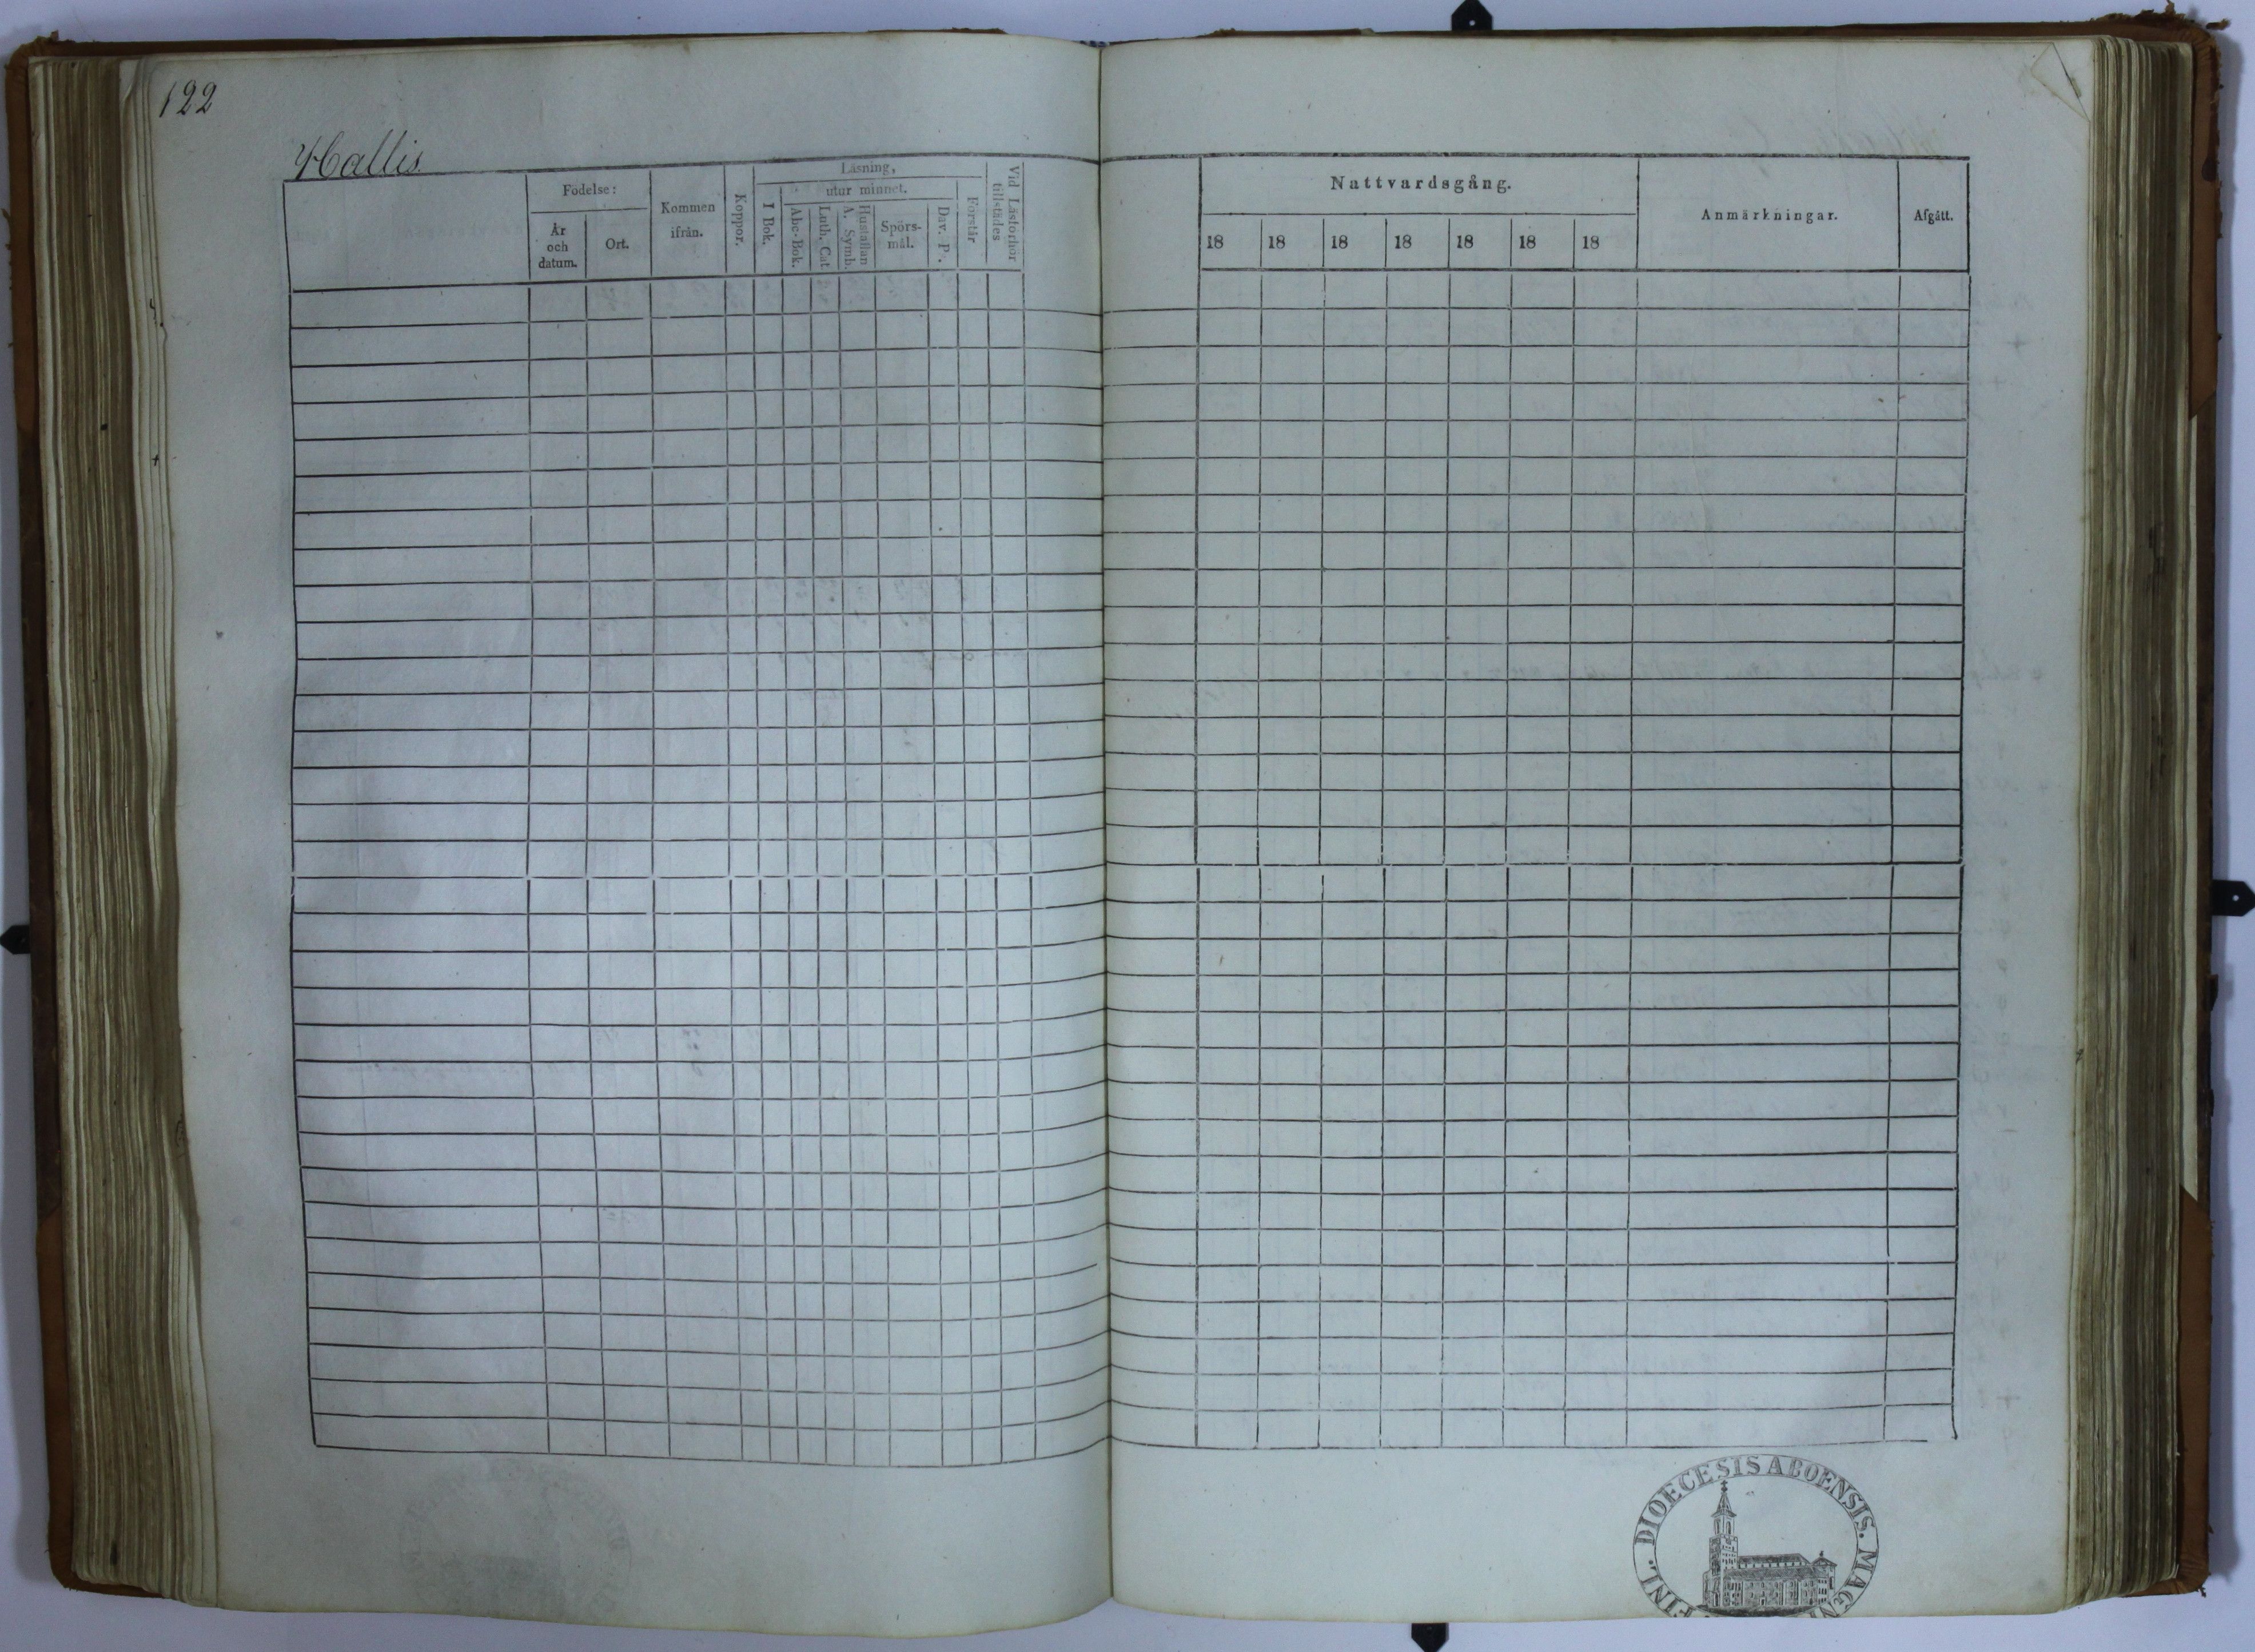 122
Hallis.
Födelse:
År
och
datum.
Ort.
Kommen
ifrån.
Koppor.
Läsning,
utur minnet.
I Bok.
Abc-Bok.
Luth. Cat
A. Symb.
Hustaflan
Spörs-
mål.
Dav. Ps.
Förstår
Vid Läsförhör
tillstädes
Nattvardsgång.
18 18 18 18 18 18 18
Anmärkningar.
Afgått.
FINL. DIOECESIS ABOENSIS. MAGN